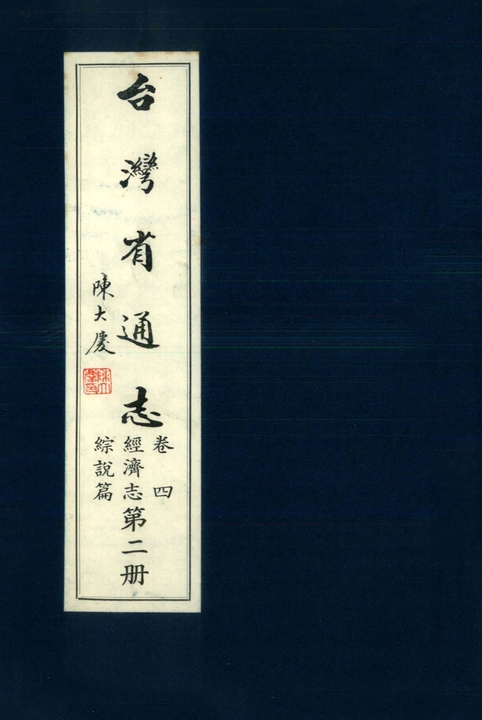 台灣省通志
卷四
經濟志第二册
綜說篇
陳大慶